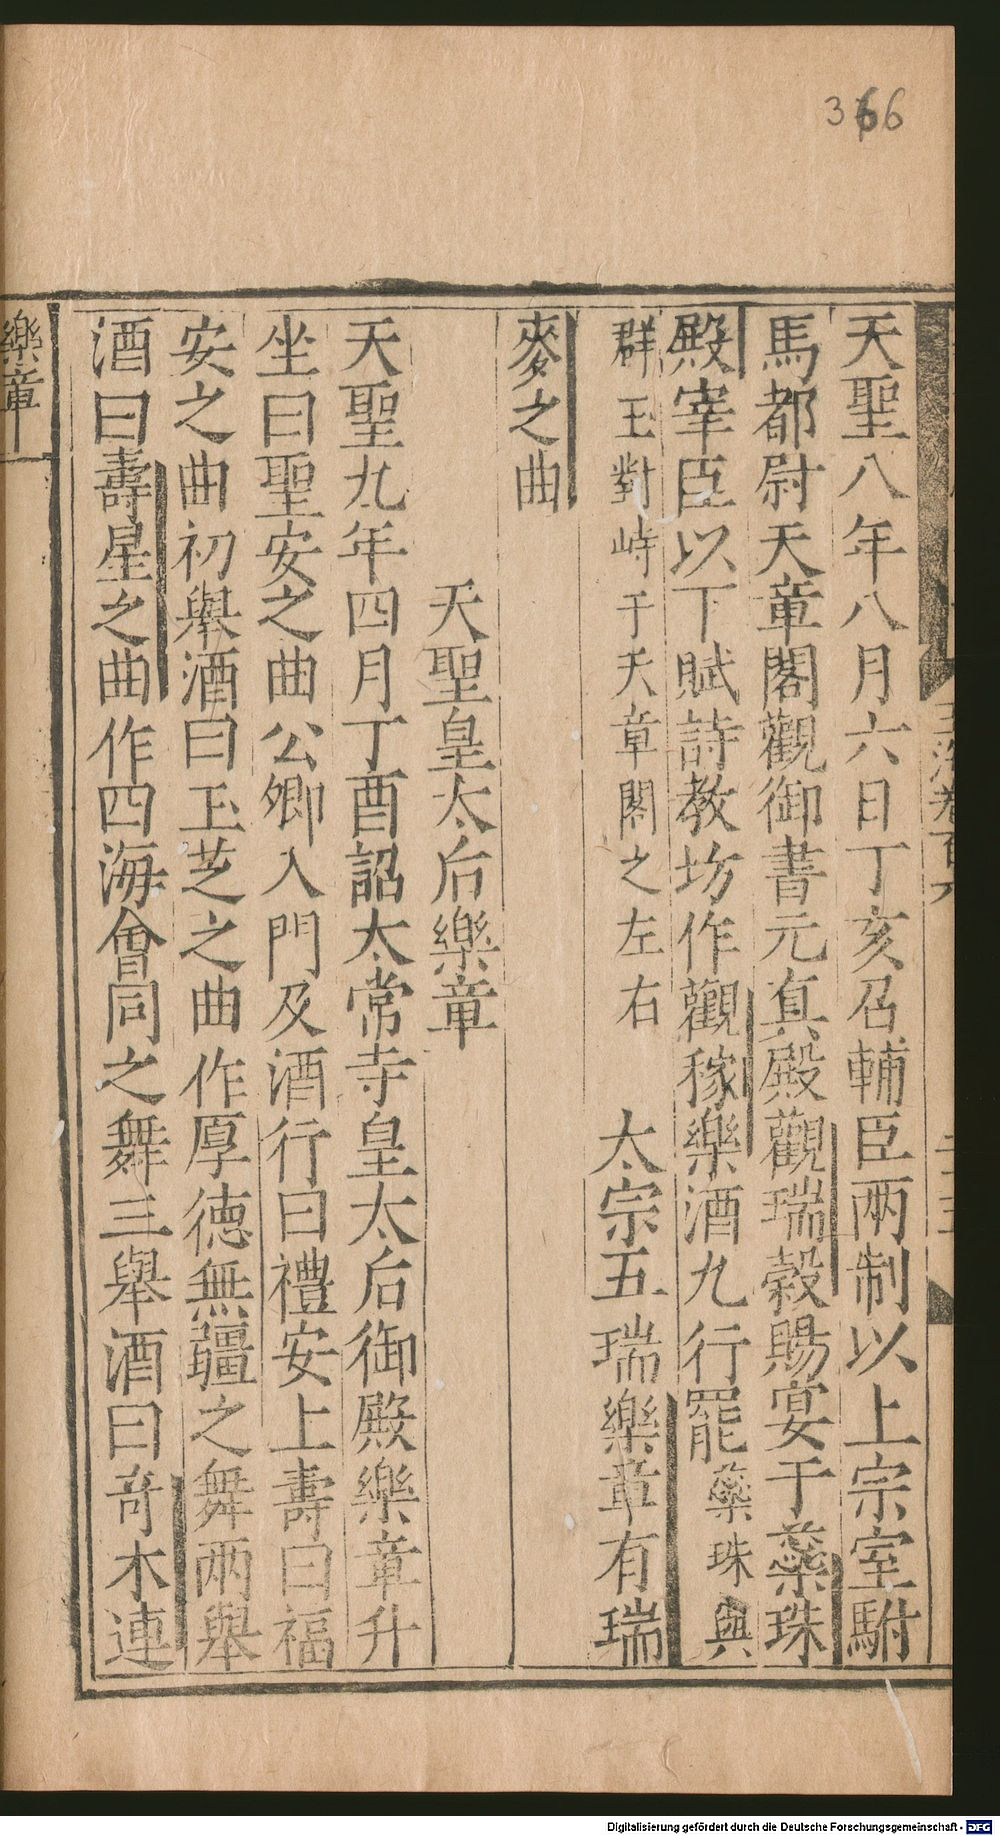 366
玉海卷百六
天聖八年八月六日丁亥召輔臣兩制以上宗室駙
馬都尉天章閣觀御書元真殿觀瑞穀賜宴于蘂珠
殿宰臣以下賦詩教坊作觀稼樂酒九行罷蘂珠與
群玉對峙于天章閣之左右 太宗五瑞樂章有瑞
麥之曲
天聖皇太后樂章
天聖九年四月丁酉詔太常寺皇太后御殿樂章升
坐曰聖安之曲公卿入門及酒行曰禮安上壽曰福
安之曲初舉酒曰玉芝之曲作厚德無疆之舞兩舉
酒曰壽星之曲作四海會同之舞三舉酒曰奇木連
樂章
Digitalisierung gefördert durch die Deutsche Forschungsgemeinschaft - DFG